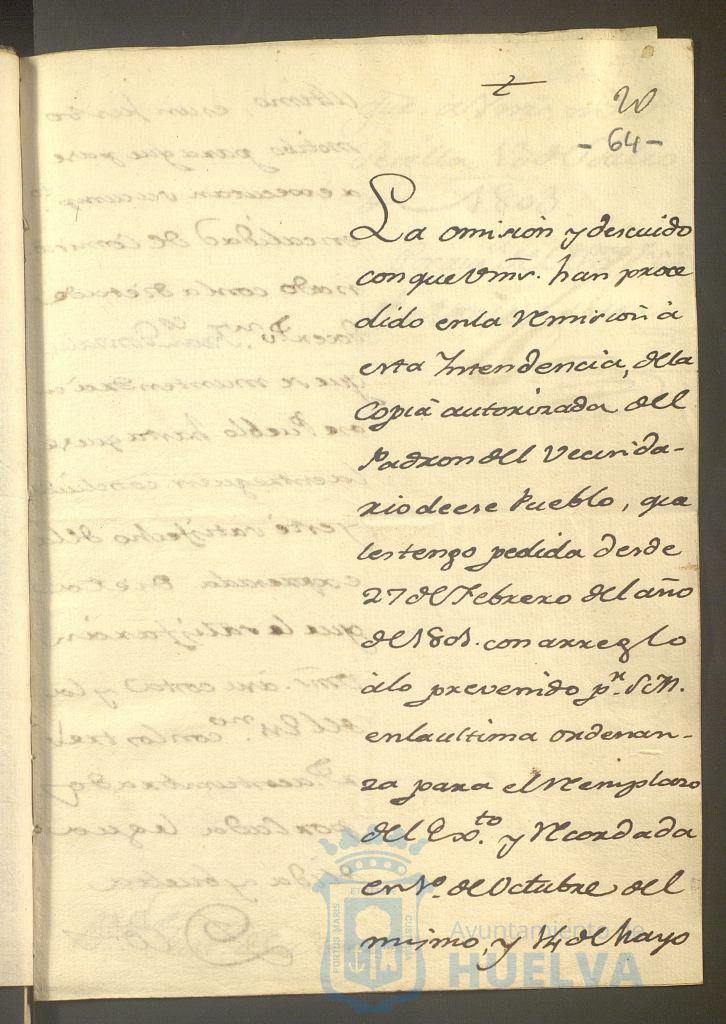 20
-64-
La omision y descuido
con que Vms. han proce
dido en la Remision à
esta Intendencia, de la
Copia autorizada del
Padron del Vecinda-
rio de ese Pueblo, que
les tengo pedida desde
27 de Febrero del año
de 1801. con arreglo
à lo prevenido pr. S.M.
en la ultima ordenan-
za para el Reemplazo
del Exto. y Recordada
en 1o. de Octubre del
mismo, y 14 de Mayo
Ayuntamiento de
HUELVA
PORTUS MARIS